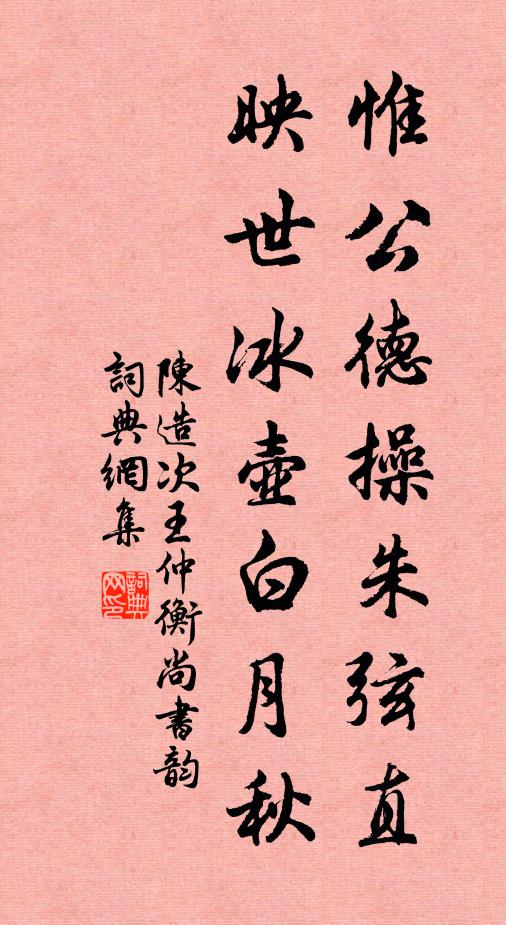 惟公德操朱弦直
映世冰壺白月秋
陳造次王仲衡尚書韵
詞典網集
詞典网印